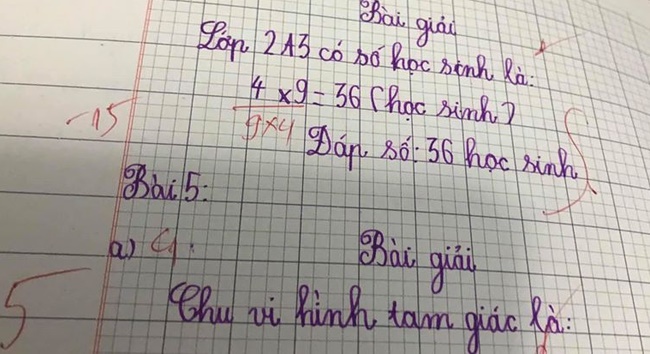 Bài giải
Lớp 2A3 có số học sinh là:
4 x 9 = 36 (học sinh)
-15 9x4
Đáp số: 36 học sinh
Bài 5:
a)
Bài giải
5
Chu vi hình tam giác là: